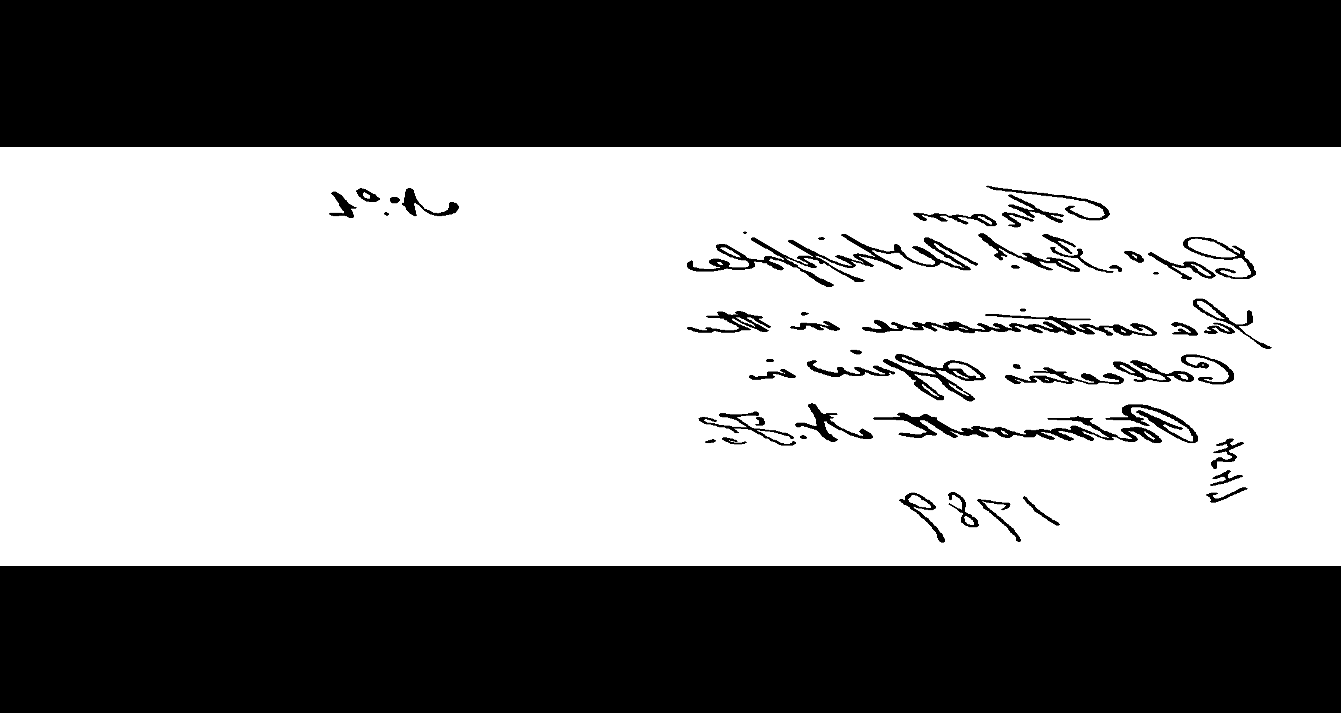 From
Col.º Jos.ʰ Whipple
for a continuance in the
Collectors Office in
Portsmouth N. H.
1789
N.º 1